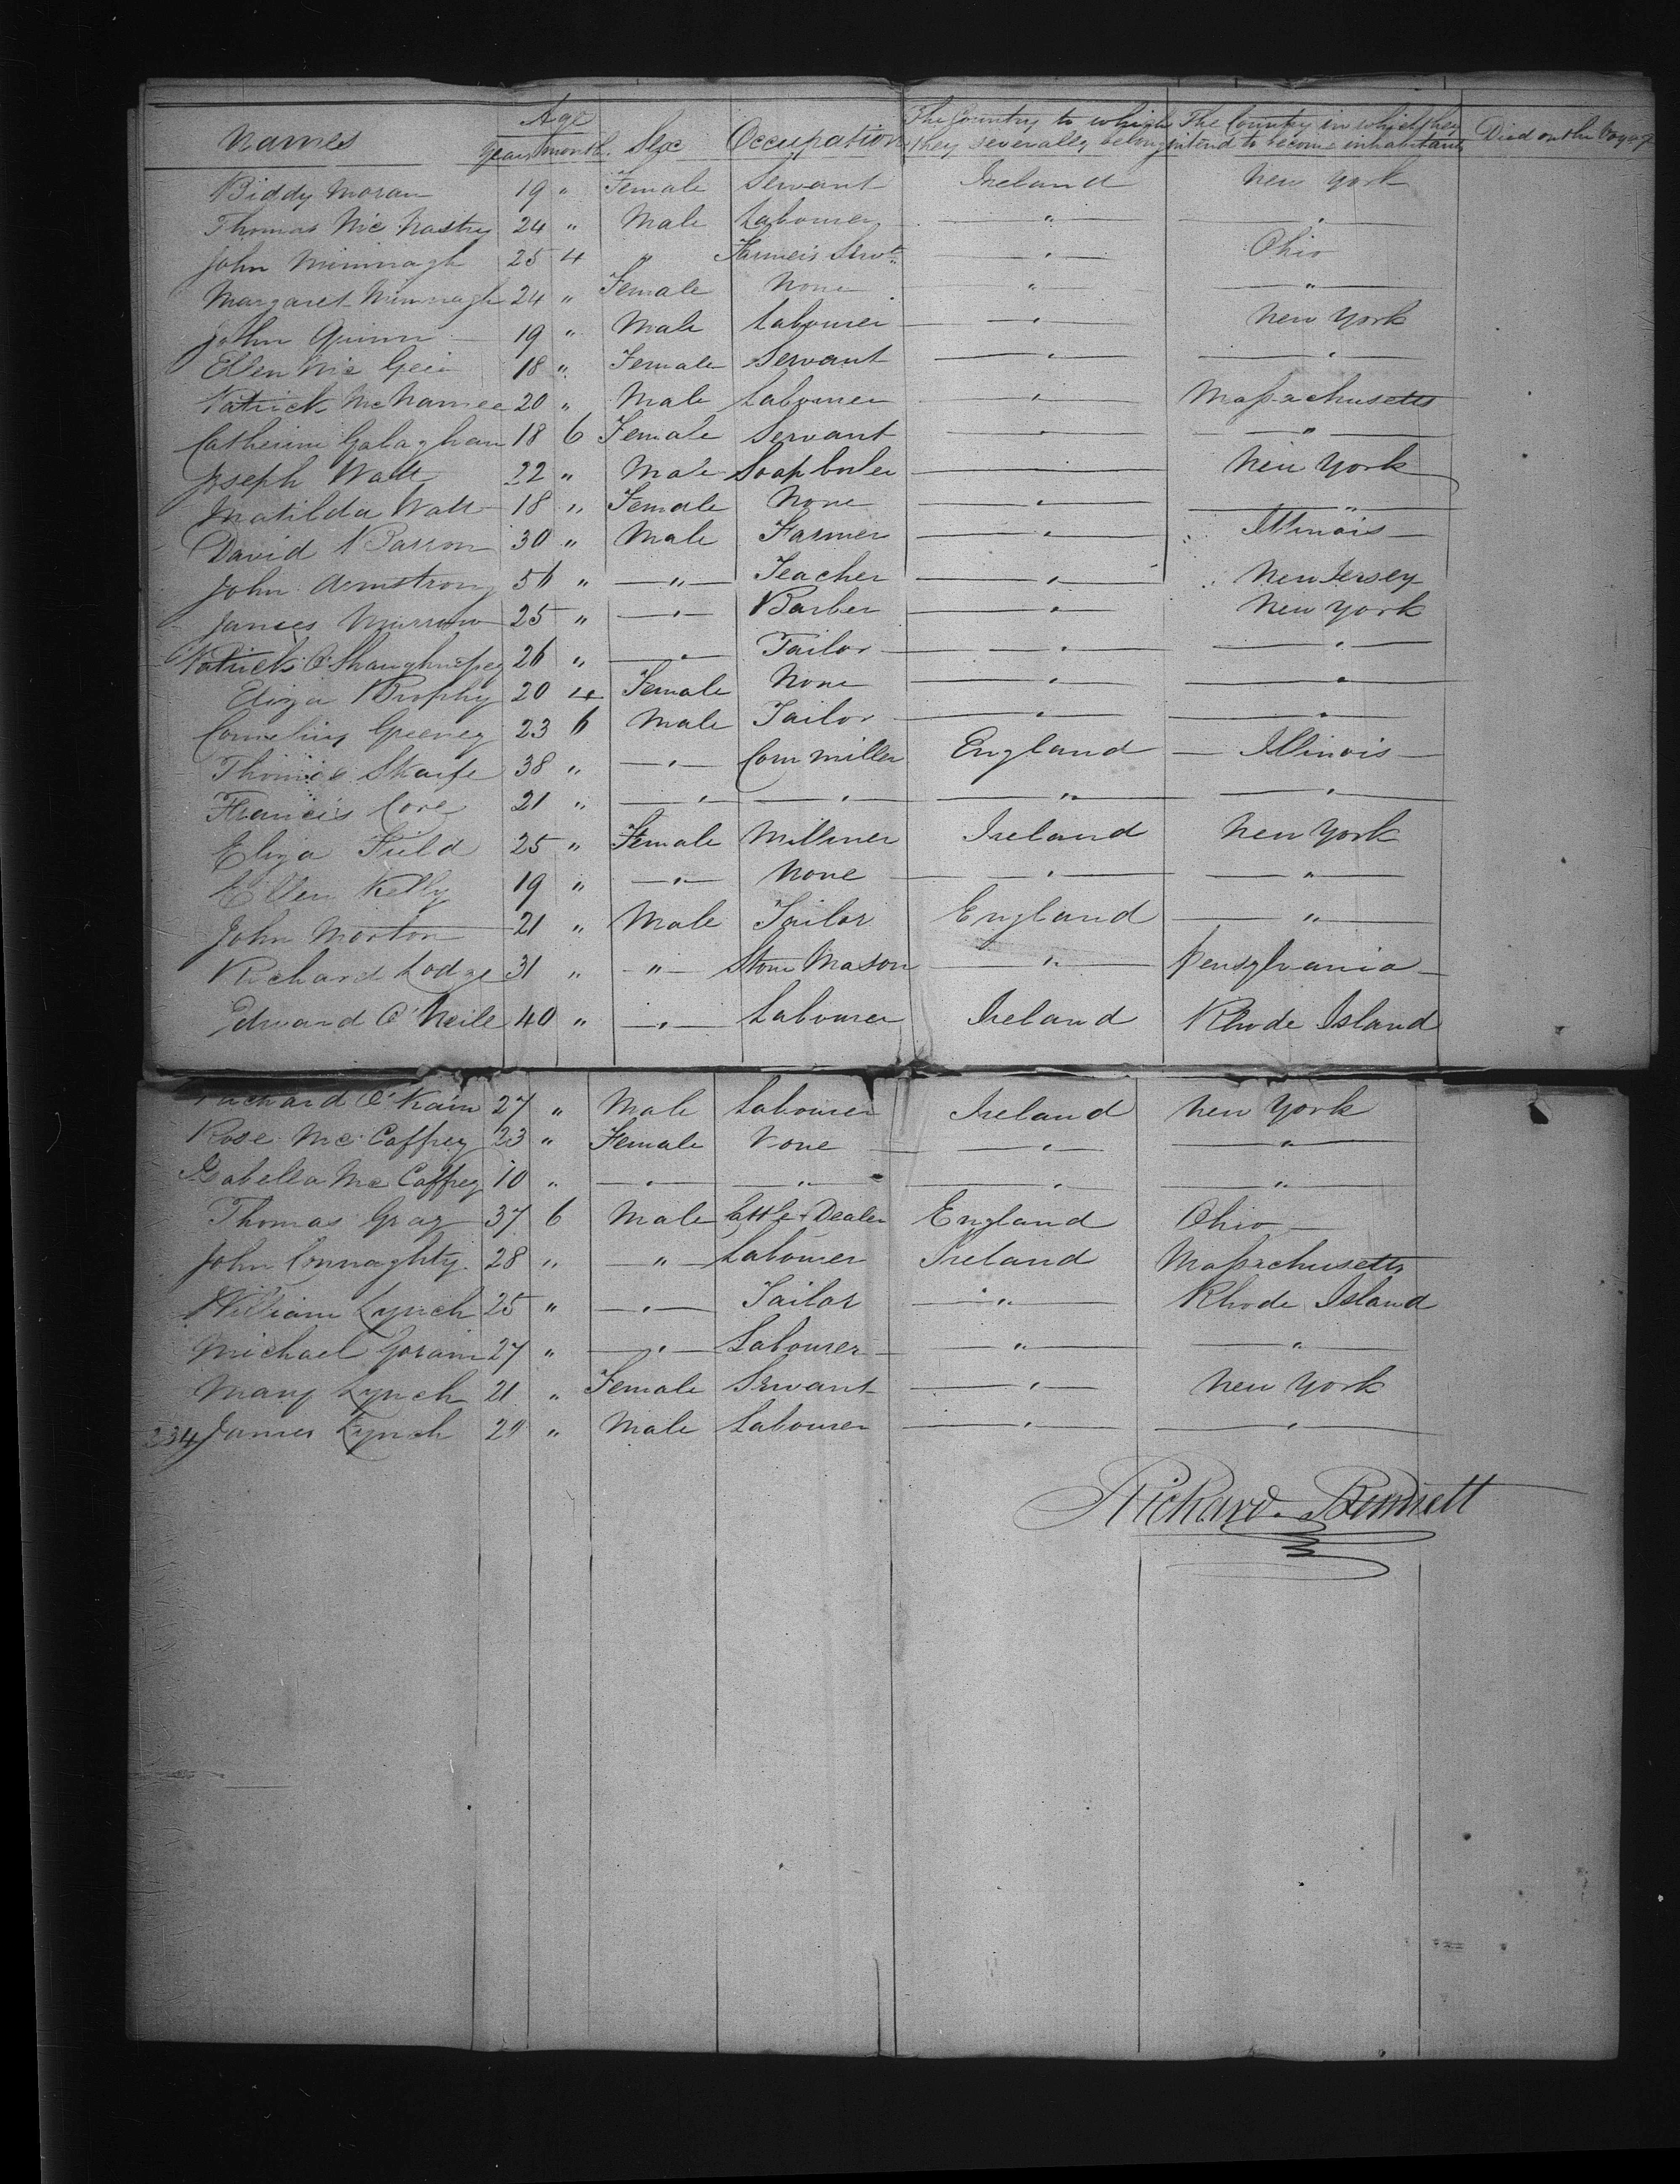 Names Age Sex Occupation The Country to which The Country in which they Died on the Voyage
Years months they severally belong intend to become inhabitants
Biddy Moran 19 " Female Servant Ireland New York
Thomas Mc Nastry 24 " Male Labourer " "
John Minnagh 25 4 " Farmer's Servt " Ohio
Margaret Minnagh 24 " Female None " "
John Quinn 19 " Male Labourer " New York
Ellen Mc Gee 18 " Female Servant " "
Patrick McNamee 20 " Male Labourer " Massachusetts
Catherine Galaghan 18 6 Female Servant " "
Joseph Watt 22 " Male Soap boiler New York
Matilda Watt 18 " Female None " "
David Barron 30 " Male Farmer " Illinois
John Armstrong 56 " " Teacher " New Jersey
James Murrow 25 " " Barber " New York
Patrick O'Shaughnessey 26 " " Tailor " "
Eliza Brophy 20 4 Female None " "
Cornelius Greeney 23 6 Male Tailor " "
Thomas Skaife 38 " " Corn miller England Illinois
Francis Core 21 " " " " "
Eliza Field 25 " Female Milliner Ireland New York
Ellen Kelly 19 " " None " "
John Morton 21 " Male Tailor England "
Richard Lodge 31 " " Stone Mason " Pensylvania
Edward O'Neile 40 " " Labourer Ireland Rhode Island
Richard O'Kain 27 " Male Labourer Ireland New York
Rose Mc Caffrey 23 " Female None " "
Isabella Mc Caffrey 10 " " " " "
Thomas Gray 37 6 Male Cattle Dealer England Ohio
John Connaghty 28 " " Labourer Ireland Massachusetts
William Lynch 25 " " Tailor " Rhode Island
Michael Gorain 27 " " Labourer " "
Mary Lynch 21 " Female Servant " New York
234 James Lynch 29 " Male Labourer " "
Richard Bennett